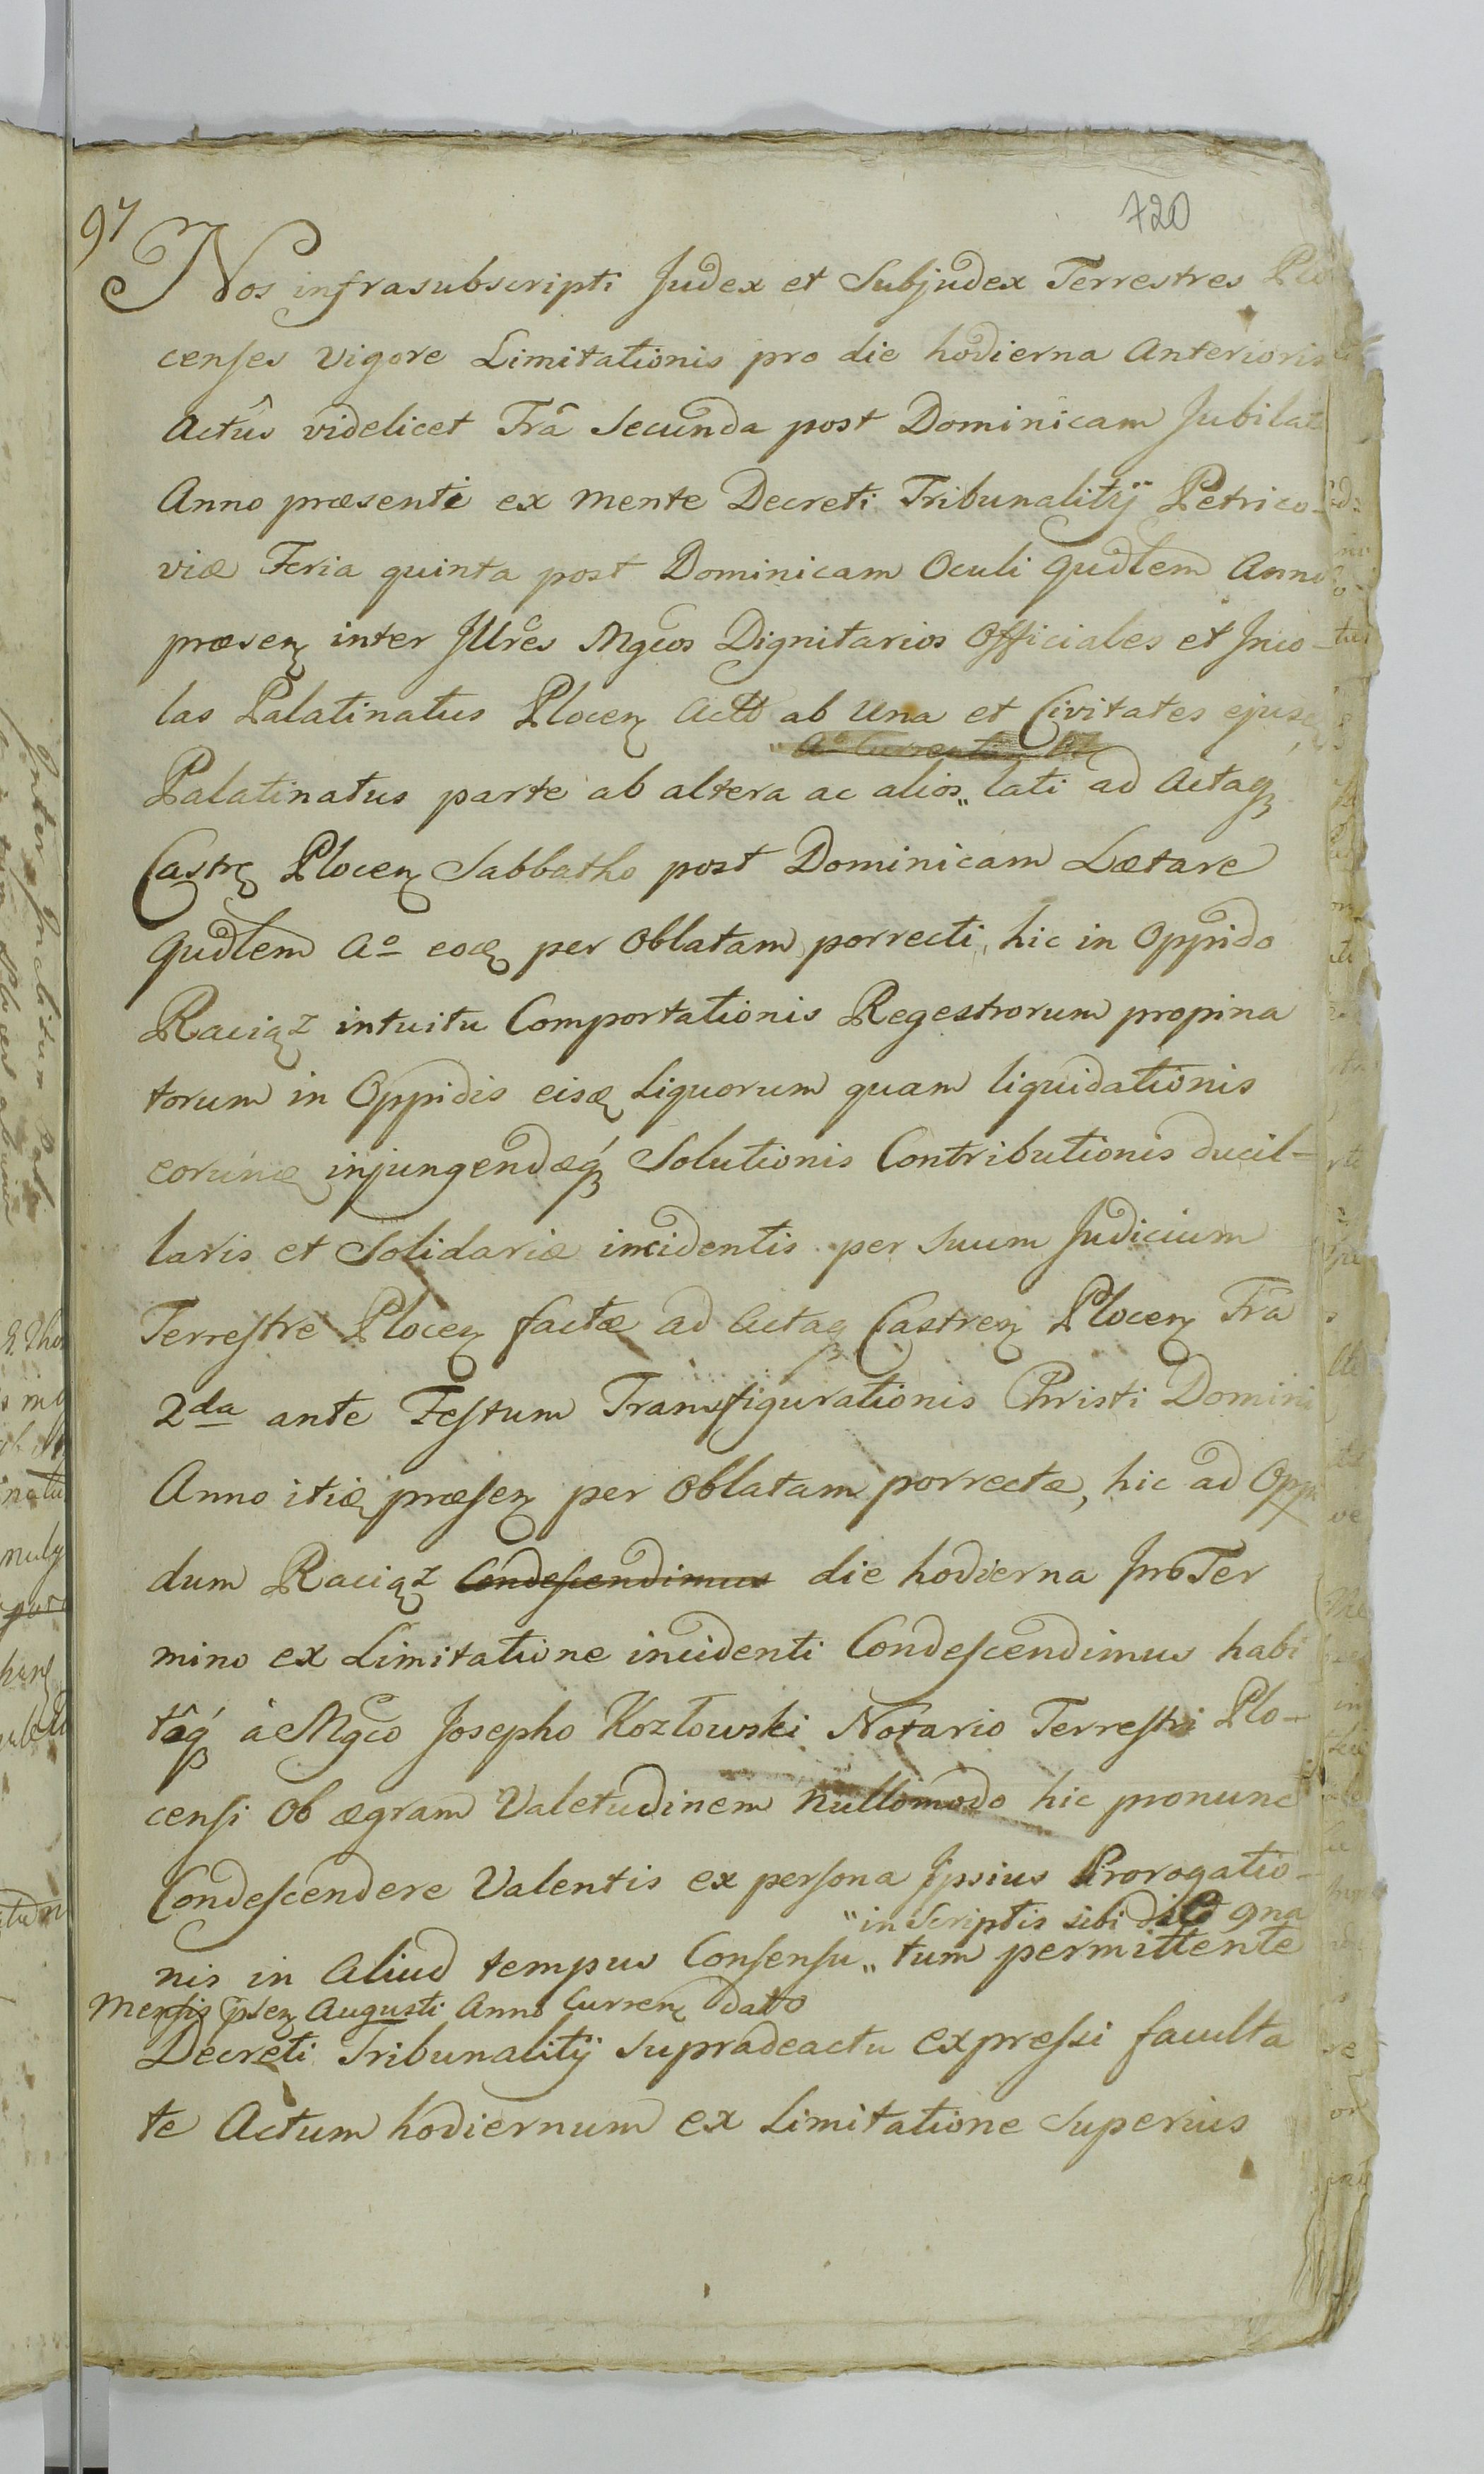 720
97
Nos infrasubscripti Judex et Subjudex Terrestres Plo
censes vigore Limitationis pro die hodierna Anterioris
Actûs videlicet Frâ Secunda post Dominicam Jubilate
Anno præsenti ex mente Decreti Tribunalitÿ Petrico-
viæ Feria quinta post Dominicam Oculi qudlem Anno
præsen inter Illres Mgcos Dignitarios Officiales et Inco-
las Palatinatus Plocen Act ab Una et Civitates ejusd
Palatinatus parte ab altera ac alios„ lati ad Actaq
Castr Plocen Sabbatho post Dominicam Lætare
qudlem Ao eod per Oblatam porrecti, hic in Oppido
Raciąz intuitu Comportationis Regestrorum propina
torum in Oppidis eisd Liquorum quam liquidationis
eorund injungendæq Solutionis Contributionis ducil-
laris et Solidariæ incidentis per suum Judicium
Terrestre Plocen factæ ad Actaq Castren Plocen Frâ
2da ante Festum Transfigurationis Christi Domini
Anno itid præsen per Oblatam porrectæ, hic ad Oppi
dum Raciąz Condescendimus die hodierna pro Ter
mino ex Limitatione incidenti Condescendimus habi
tôq à Mgco Josepho Kozłowski Notario Terrestri Plo-
censi Ob ægram Valetudinem nullomodo hic pronunc
Condescendere Valentis ex persona Ipsius Prorogatio-
"in Scriptis sibi
nis in Aliud tempus Consensu„ tum permittente
Mensis psen Augusti Anno Curren dato
Decreti Tribunalitÿ supradeactu expressi faculta
te Actum hodiernum ex Limitatione superius